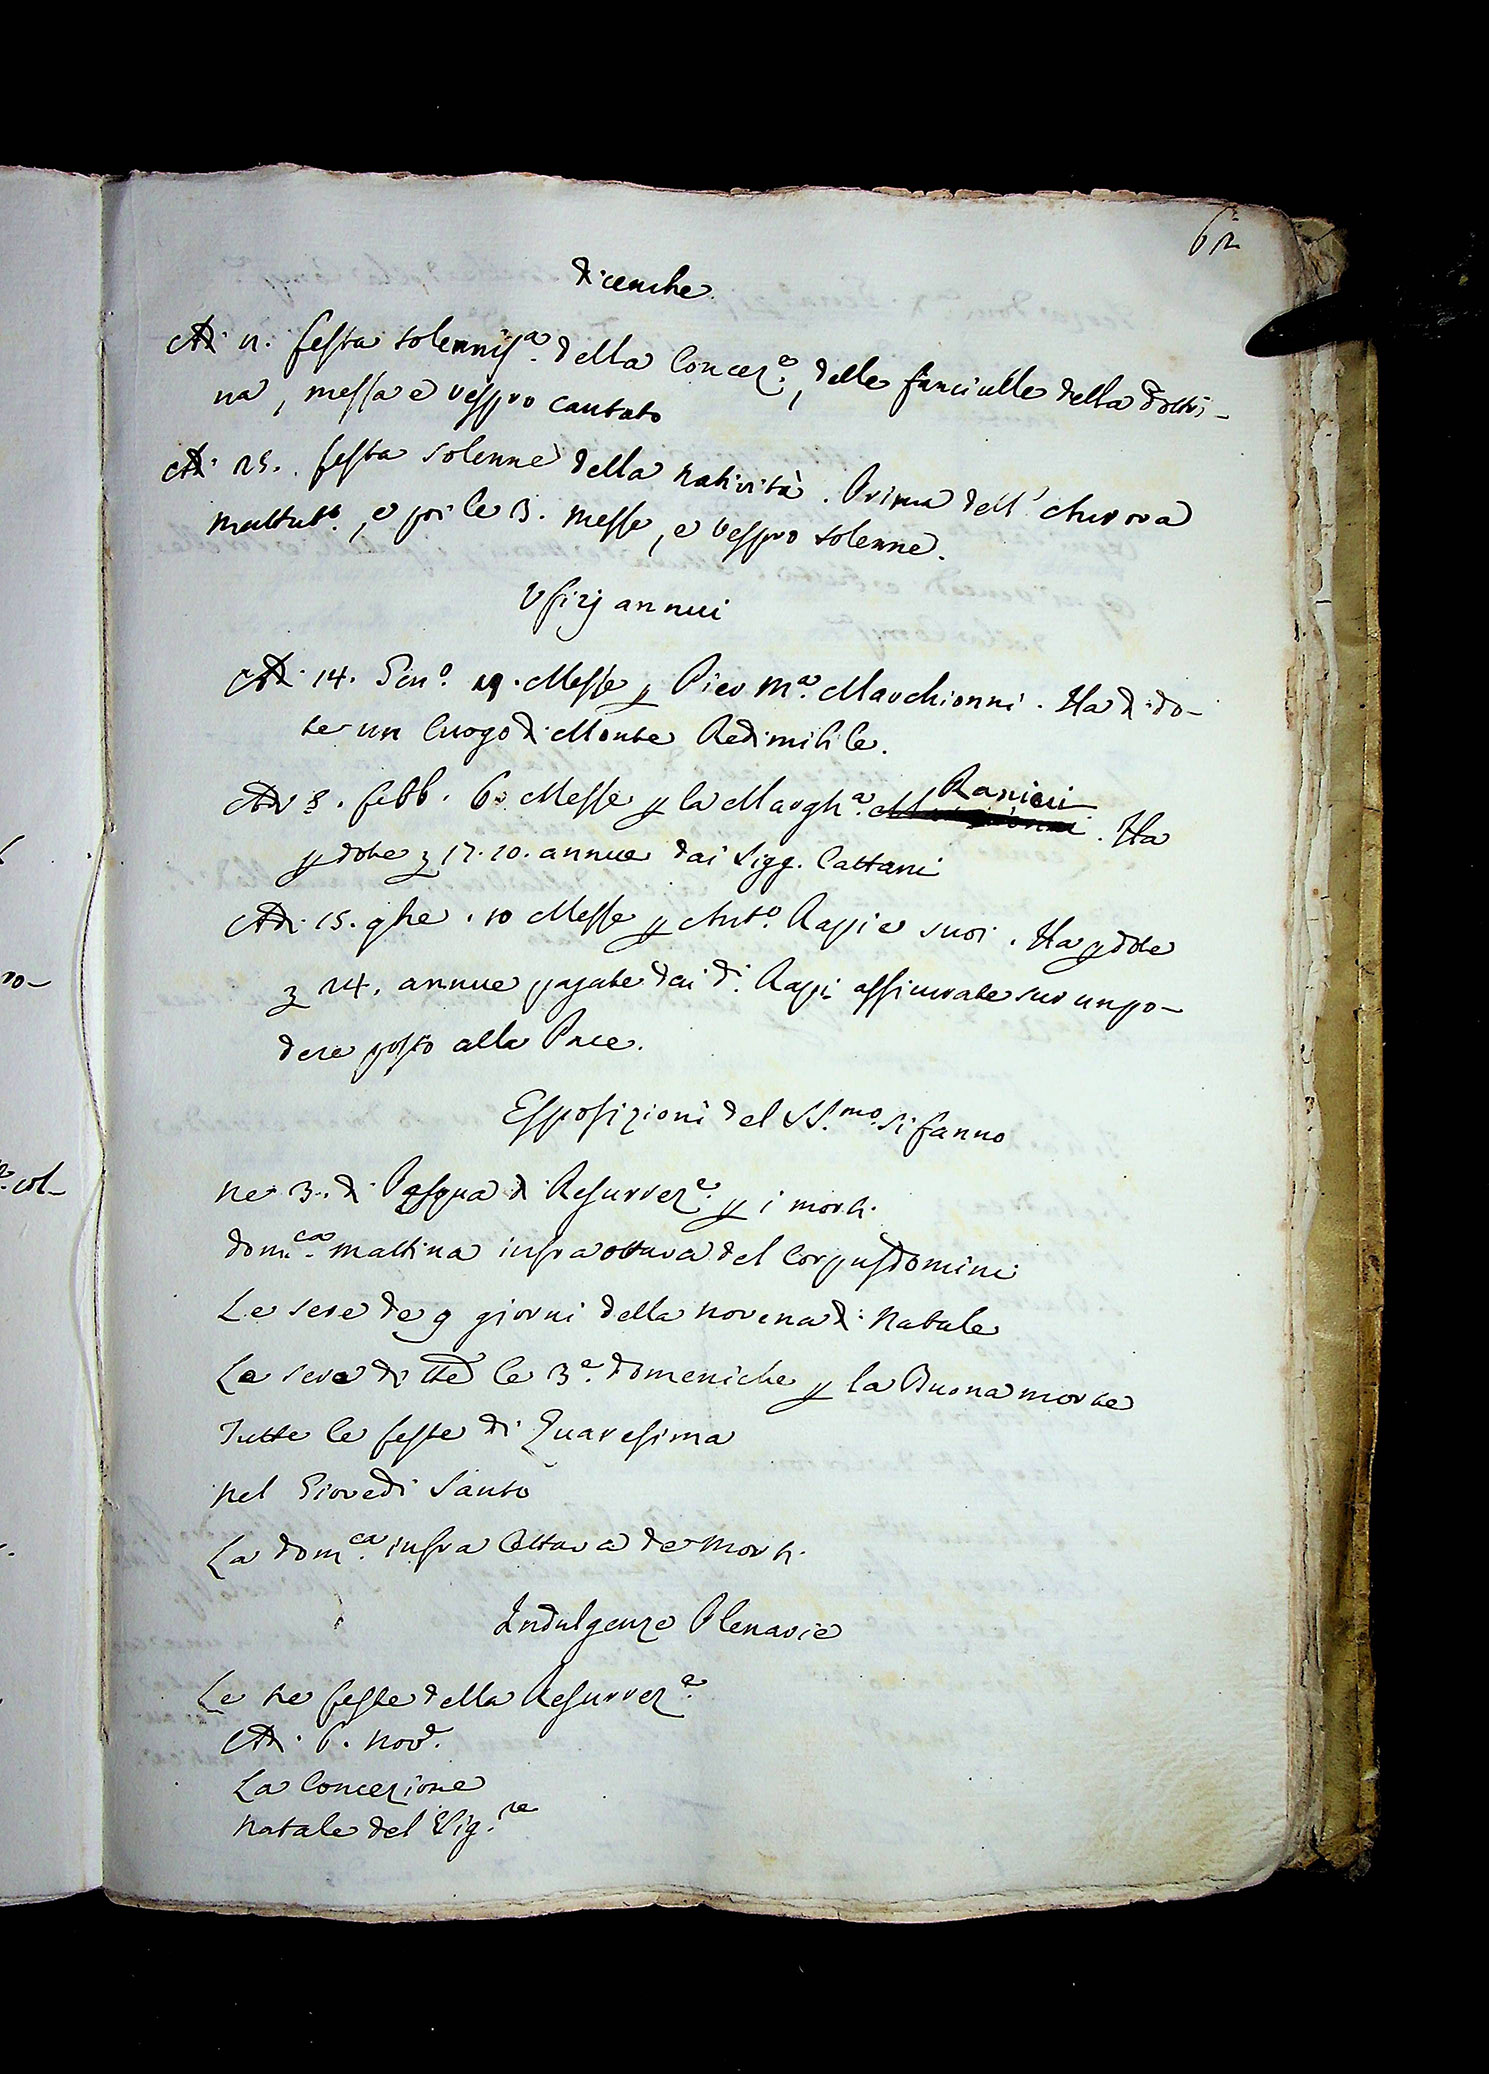 62
Dicembre
Adi 12. festa solenniss.a della Concez.e, delle fanciulle della Dottri-
na, messa e vespro cantato
Adi 25. festa solenne della natività. Prima dell' Aurora
mattut.o, e poi le 3. messe, e vespro solenne.
Ufizj annui
Adi 14. Gen.o 19. Messe p Pier M.a Marchionni. Ha di do-
te un luogo di Monte Redimibile.
Adi 8. febb. 6. Messe p la Margh.a Ranieri. Ha
p dote 17.10. annue dai Sigg. Cattani
Adi 15. 9bre. 10 Messe p Ant.o Rappi e suoi. Ha p dote
24. annue pagate dai d.i Rappi assicurate sur un po-
dere posto alla Pace.
Esposizioni del SS.mo si fanno
ne 3. dì Pasqua di Resurrez.e p i morti.
dom.ca mattina infraottava del Corpusdomini
Le sere de 9 giorni della novena di Natale
La sera di tte le 3.e domeniche p la Buona morte
Tutte le feste di Quaresima
nel Giovedì Santo
La dom.ca infra l'ottava de morti.
Indulgenze Plenarie
Le tre feste della Resurrez.e
Adi 6. nov.
La Concezione
Natale del Sig.re
no-
col-